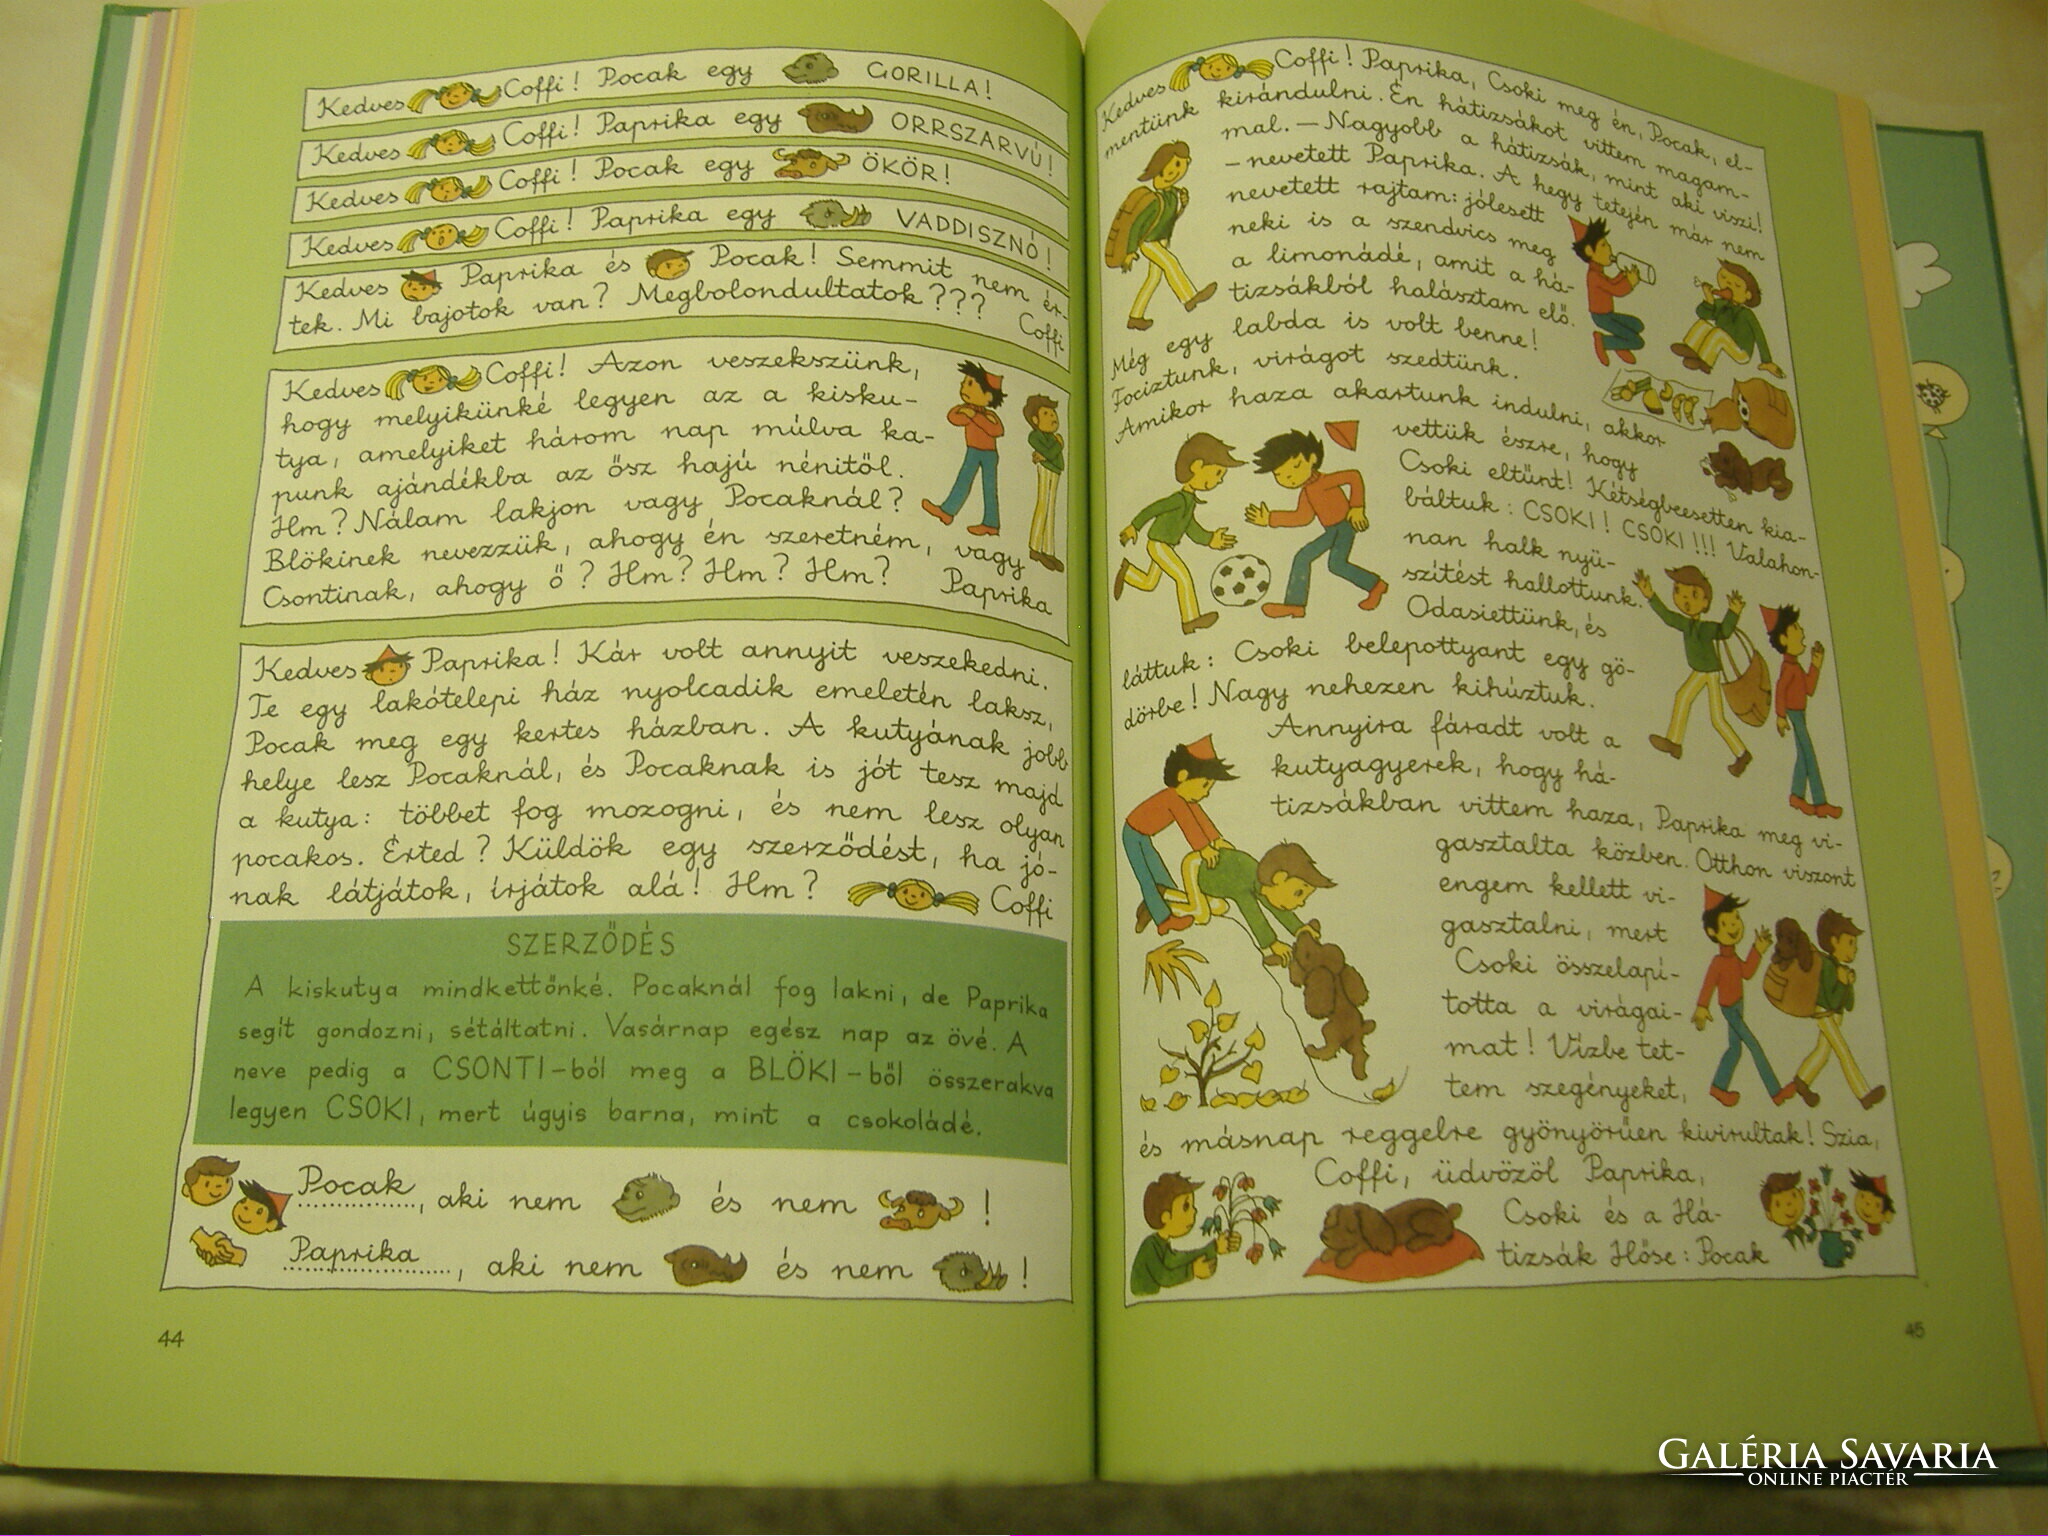 Kedves Coffi! Pocak egy GORILLA!
Kedves Coffi! Paprika egy ORRSZARVÚ!
Kedves Coffi! Pocak egy ÖKÖR!
Kedves Coffi! Paprika egy VADDISZNÓ!
Kedves Paprika és Pocak! Semmit nem ér-
tek. Mi bajotok van? Megbolondultatok???
Coffi
Kedves Coffi! Azon veszekszünk,
hogy melyikünké legyen az a kisku-
tya, amelyiket három nap múlva ka-
punk ajándékba az ősz hajú nénitől.
Hm? Nálam lakjon vagy Pocaknál?
Blökinek nevezzük, ahogy én szeretném, vagy
Csontinak, ahogy ő? Hm? Hm? Hm?
Paprika
Kedves Paprika! Kár volt annyit veszekedni.
Te egy lakótelepi ház nyolcadik emeletén laksz,
Pocak meg egy kertes házban. A kutyának jobb
helye lesz Pocaknál, és Pocaknak is jót tesz majd
a kutya: többet fog mozogni, és nem lesz olyan
pocakos. Érted? Küldök egy szerződést, ha jó-
nak látjátok, írjátok alá! Hm?
Coffi
SZERZŐDÉS
A kiskutya mindkettőnké. Pocaknál fog lakni, de Paprika
segít gondozni, sétáltatni. Vasárnap egész nap az övé. A
neve pedig a CSONTI-ból meg a BLÖKI-ből összerakva
legyen CSOKI, mert úgyis barna, mint a csokoládé.
Pocak, aki nem és nem !
Paprika, aki nem és nem !
44
Kedves Coffi! Paprika, Csoki meg én, Pocak, el-
mentünk kirándulni. Én hátizsákot vittem magam-
mal. – Nagyobb a hátizsák, mint aki viszi!
– nevetett Paprika. A hegy tetején már nem
nevetett rajtam: jólesett
neki is a szendvics meg
a limonádé, amit a há-
tizsákból halásztam elő.
Még egy labda is volt benne!
Fociztunk, virágot szedtünk.
Amikor haza akartunk indulni, akkor
vettük észre, hogy
Csoki eltűnt! Kétségbeesetten kia-
báltuk: CSOKI! CSOKI!!! Valahon-
nan halk nyü-
szítést hallottunk.
Odasiettünk, és
láttuk: Csoki belepottyant egy gö-
dörbe! Nagy nehezen kihúztuk.
Annyira fáradt volt a
kutyagyerek, hogy há-
tizsákban vittem haza, Paprika meg vi-
gasztalta közben. Otthon viszont
engem kellett vi-
gasztalni, mert
Csoki összelapí-
totta a virágai-
mat! Vízbe tet-
tem szegényeket,
és másnap reggelre gyönyörűen kivirultak! Szia,
Coffi, üdvözöl Paprika,
Csoki és a Há-
tizsák Hőse: Pocak
45
GALÉRIA SAVARIA
ONLINE PIACTÉR